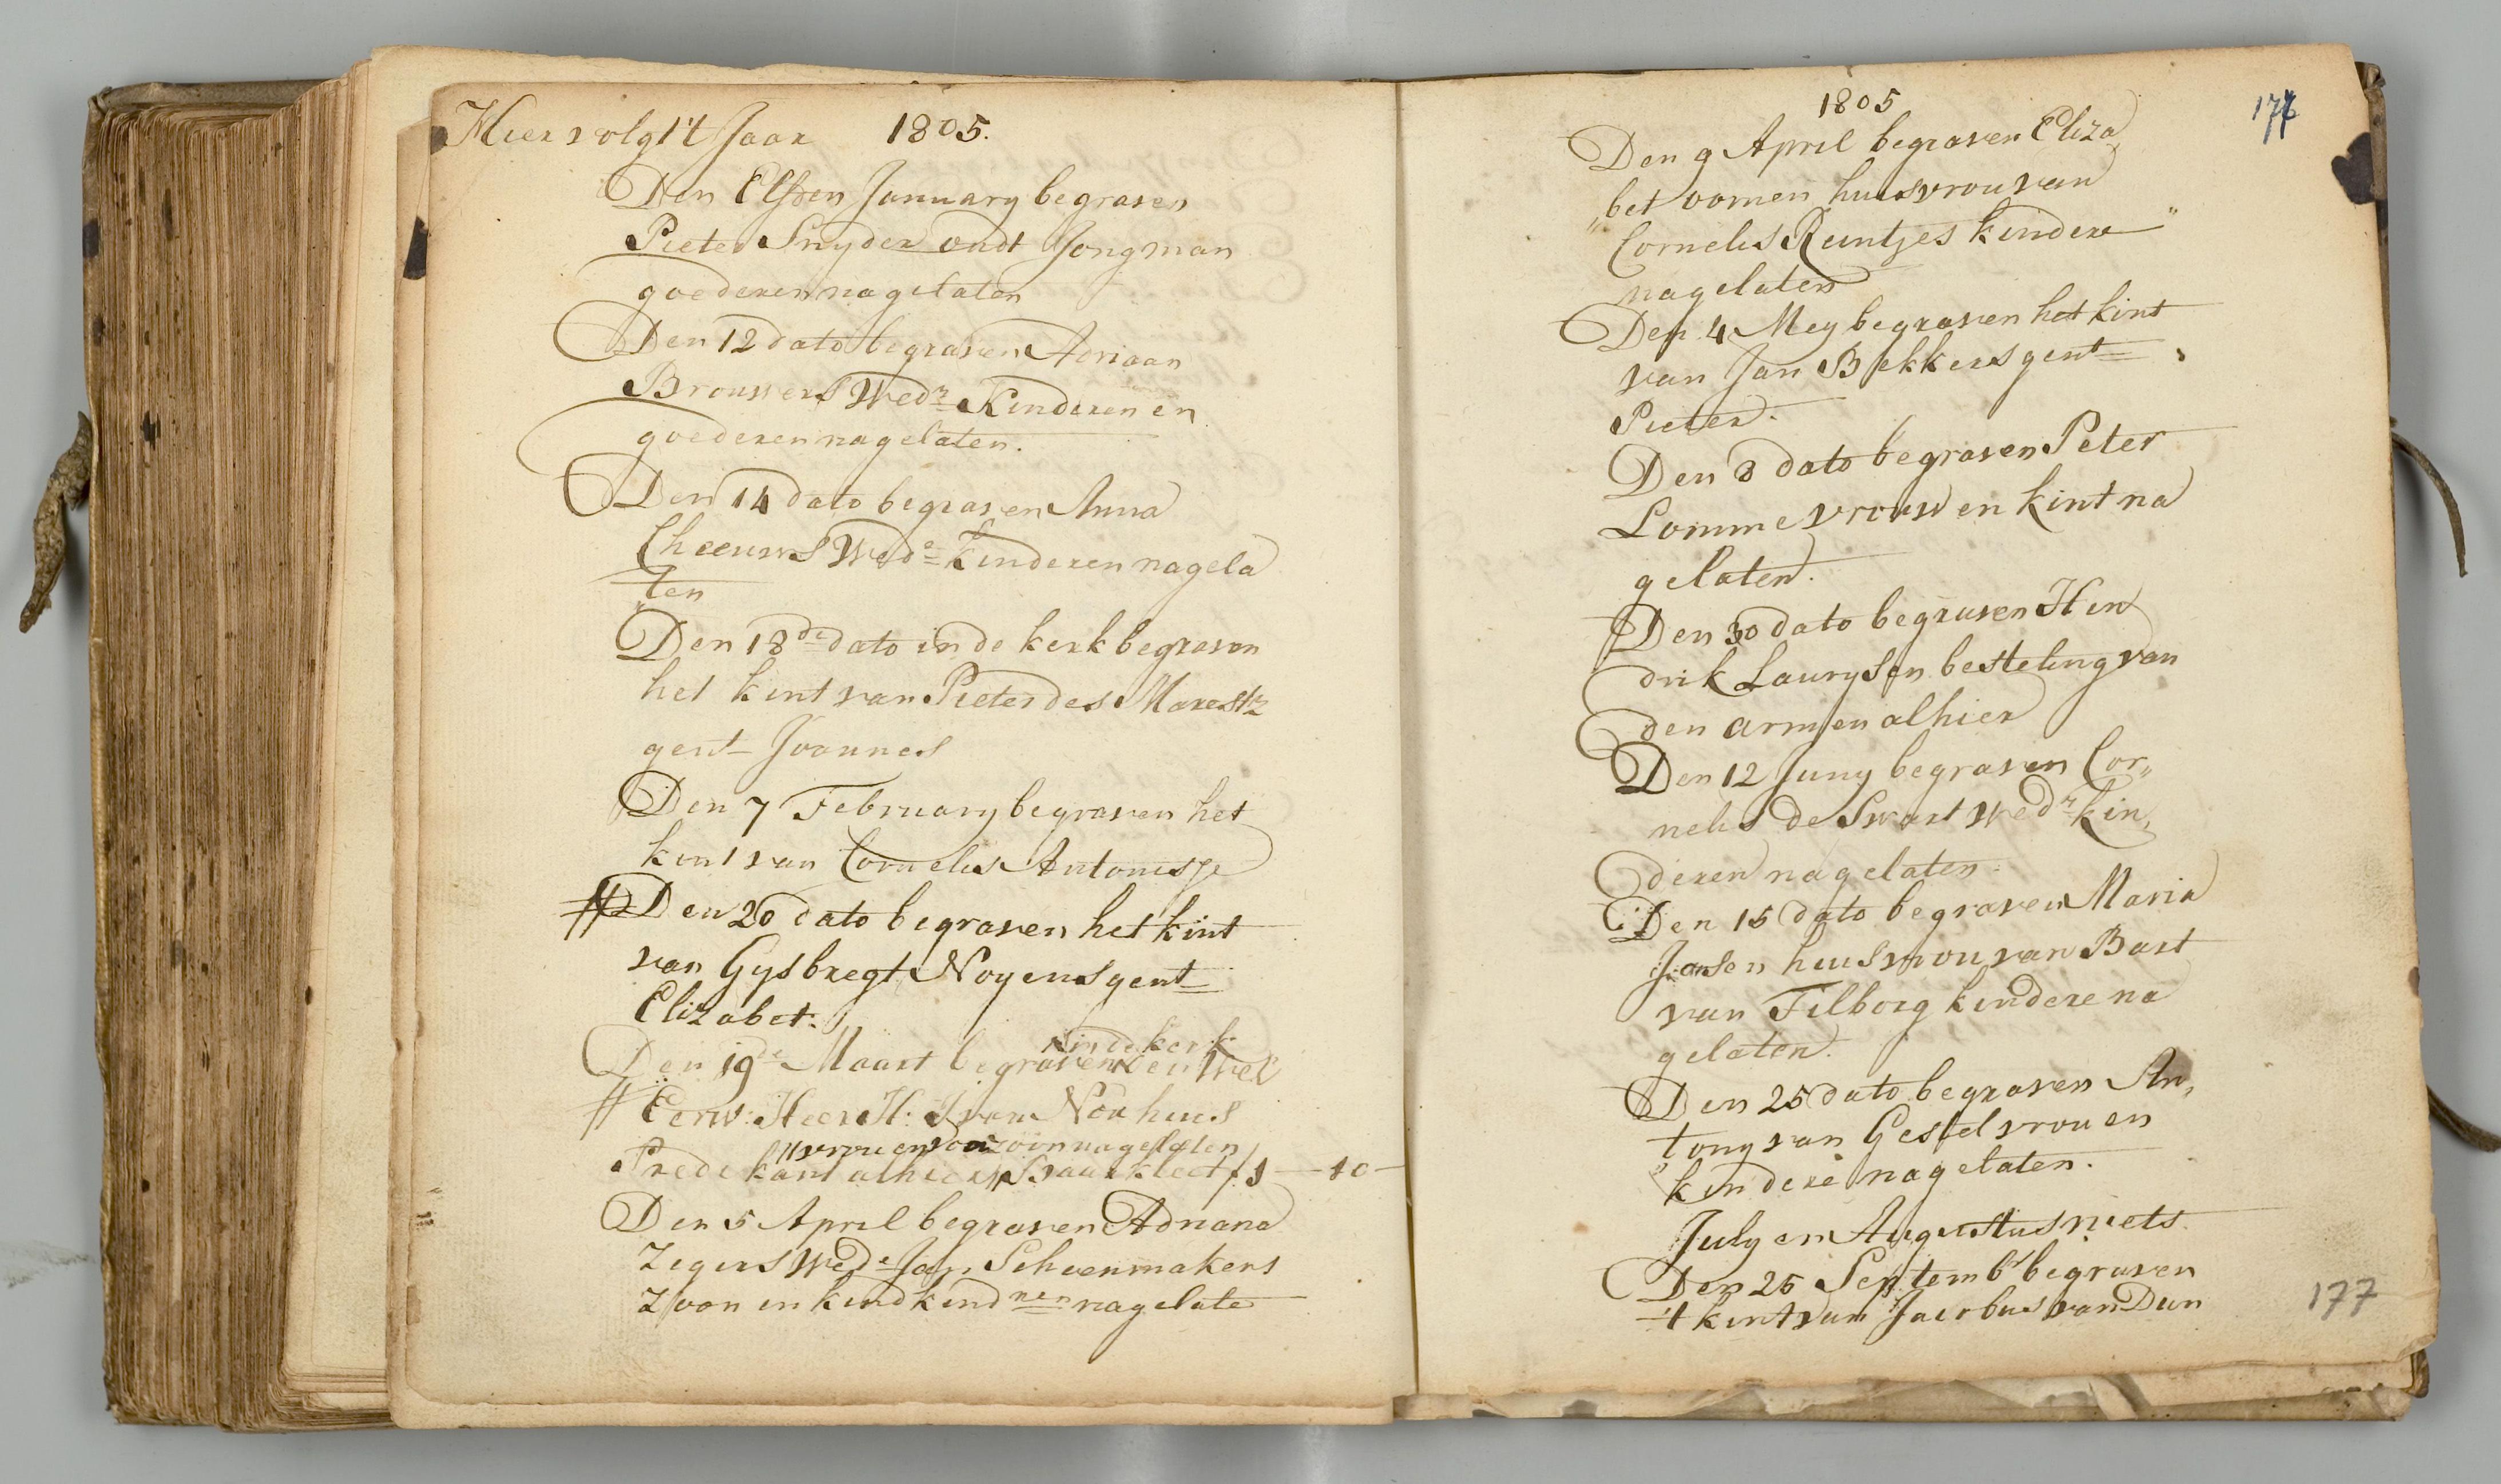 Hier volgt 't Jaar 1805.
Den Elfden January begraven
Pieter Snyder oudt Jongman
goederen nagelaten
Den 12 dato begraven Adriaan
Brouwers Wedr Kinderen en
goederen nagelaten.
Den 14 dato begraven Anna
Cheeuws Wede Kinderen nagela
ten
Den 18de dato in de kerk begraven
het kint van Pieter des Marestz
gent Joannes
Den 7 February begraven het
kint van Cornelis Antonisse
Den 20 dato begraven het kint
van Gysbregt Noyens gent
Elizabet.
in de kerk
Den 19de Maart begraven den Wel
Eerw: Heer H: J van Nouhuis
vrou en zoon nagelaten
Predekant alhier baarkleet f 1 — 10 —
Den 5 April begraven Adriana
Zegers Wede Jan Schoenmakers
Zoon en kindkindren nagelate
1805
176
Den 9 April begraven Eliza
„bet oomen huisvrou van
Cornelis Reintjes kindere
nagelaten
Den 4 Mey begraven het kint
van Jan Bekkers gent
Pieter.
Den 8 dato begraven Peter
Lomme vrouw en kint na
gelaten.
Den 30 dato begraven Hen
drik Laurysen besteling van
den armen alhier
Den 12 Juny begraven Cor„
nelis de Swart Wedr kin„
deren nagelaten.
Den 15 dato begraven Maria
Jansen huisvrou van Bast
van Tilborg kindere na
gelaten.
Den 25 dato begraven An„
tony van Gestel vrou en
kindere nagelaten.
July en Augustus niets
Den 25 Septembr begraven
't kint van Jacobus van Dun
177